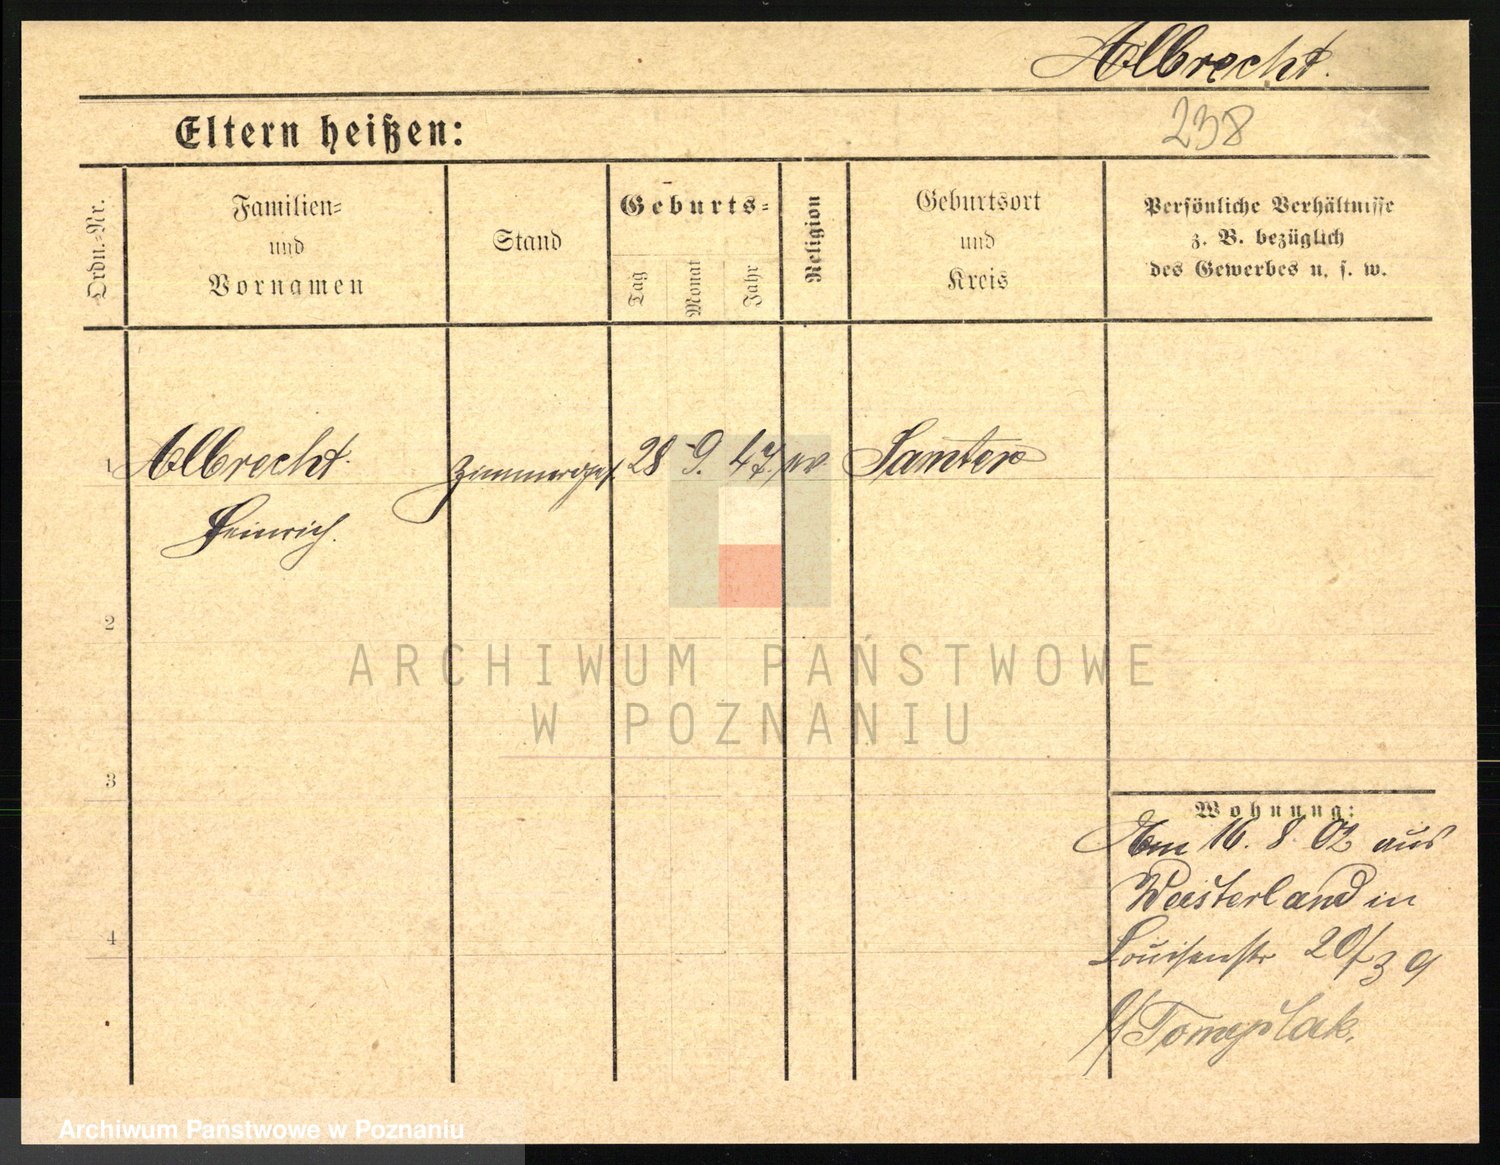 Albrecht.
Eltern heißen:
238
Ordn.=Nr.
Familien=
und
Vornamen
Stand
Geburts=
Tag
Monat
Jahr
Religion
Geburtsort
und
Kreis
Persönliche Verhältnisse
z. B. bezüglich
des Gewerbes u. s. w.
1 Albrecht. Zimmerges. 28 9. 47. ev Samter
Heinrich.
2
ARCHIWUM PAŃSTWOWE
W POZNANIU
3
Wohnung:
Am 16. 8. 02 aus
Westerland in
4
Louisenstr 20
Archiwum Państwowe w Poznaniu